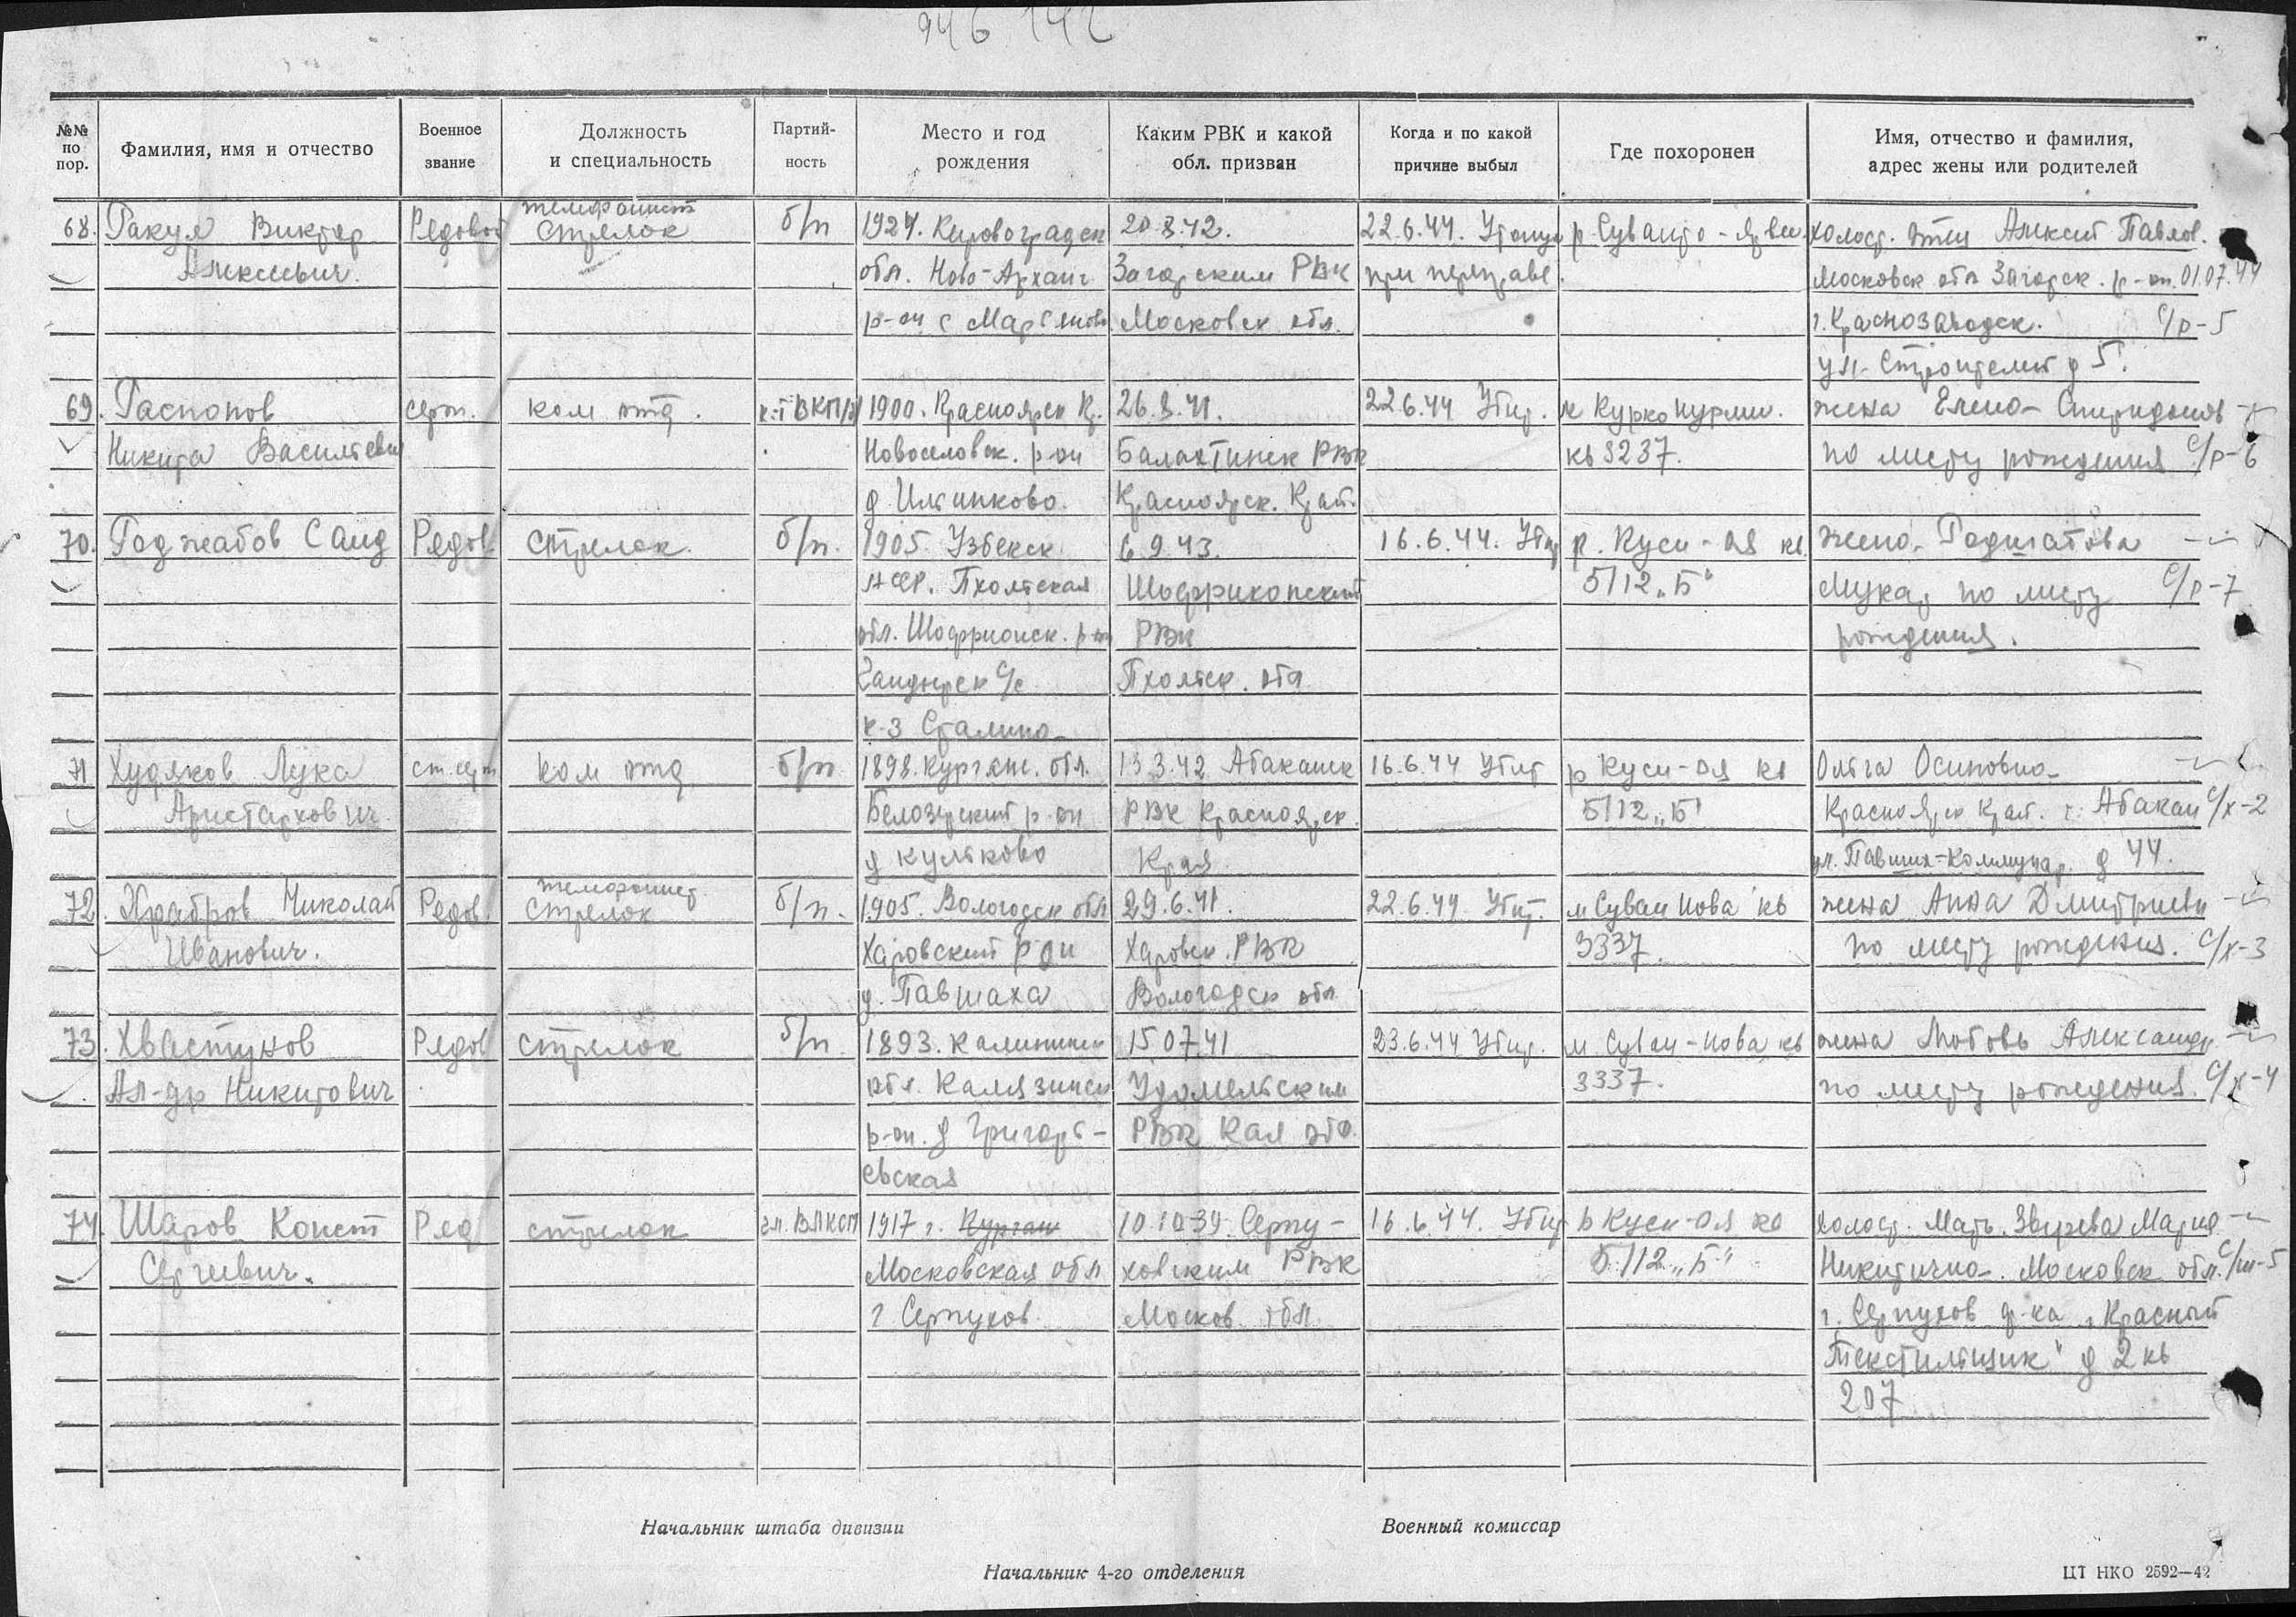 946 142
№№ по пор.
Фамилия, имя и отчество
Военное звание
Должность и специальность
Партийность
Место и год рождения
Каким РВК и какой обл. призван
Когда и по какой причине выбыл
Где похоронен
Имя, отчество и фамилия, адрес жены или родителей
68. Ракул Виктор
Алексеевич.
Рядовой
телефонист
стрелок
б/п
1924. Кировоградск
обл. Ново-Арханг
р-он с
20.8.42.
Загорским РВК
Московск обл.
22.6.44. Утонул
при переправе.
р. Суванто-Ярви
холост. Отец Алексей Павлов.
Московск обл Загорск. р-он. 01.07.44
г. Краснозаводск. С/р-5
ул. Строителей д 5.
69. Распопов
Никита Васильевич
серж.
ком отд.
к-т ВКП/б
1900. Красноярск К.
Новоселовск. р-он
д
26.8.41.
Балахтинск РВК
Красноярск. Край.
22.6.44 Убит.
м
кв 3237.
жена Елена Спиридонов
по месту рождения С/р-6
70. Раджабов Саид
Рядов
стрелок.
б/п.
1905. Узбекск
ССР.
обл. р-он
с/с
к-з Сталина
6.9.43.
РВК
обл
16.6.44. Убит
р. Куси-оя кв.
5112 „Б"
Жена. Раджабова
по месту С/р-7
рождения.
71 Худяков Лука
Аристархович.
ст. серж
ком отд
б/п
1898. Курганс. обл.
Белозерский р-он
д Кульково
13.3.42 Абаканск
РВК Красноярск.
Края
16.6.44 Убит
р Куси-оя кв
5112 „Б"
Ольга Осиповна
Краснояр Край. г. Абакан С/х-2
ул. Павших-Коммунар. д 44.
72. Храбров Николай
Иванович.
Рядов
телефонист
стрелок
б/п.
1905. Вологодск обл
Харовский р он
д. Павшаха
29.6.41.
Харовск. РВК
Вологодск обл
22.6.44 Убит.
м Суван нова кв
3337.
жена Анна Дмитриевн
по месту рождения. С/х-3
73. Хвастунов
Ал-др Никитович
Рядов
стрелок
б/п.
1893. Калининск
обл. Калязинск
р-он. д Григорь-
евская
15 07 41
Удомельским
РВК Кал обл.
23.6.44 Убит.
м Суван-нова кв
3337.
жена Любовь Александр
по месту рождения. С/х-4
74. Шаров Конст
Сергеевич.
Ряд
стрелок
чл. ВЛКСМ
1917 г. Курган
Московская обл
г Серпухов.
10.10.39. Серпу-
ховским РВК
Москов. обл
16.6.44. Убит
р Куси-оя кв
5112 „Б"
холост. Мать. Зверева Мария
Никитична. Московск обл. С/ш-5
г. Серпухов ф-ка „Красный
Текстильщик" д 2 кв
207
Начальник штаба дивизии
Военный комиссар
Начальник 4-го отделения
ЦТ НКО 2592—42